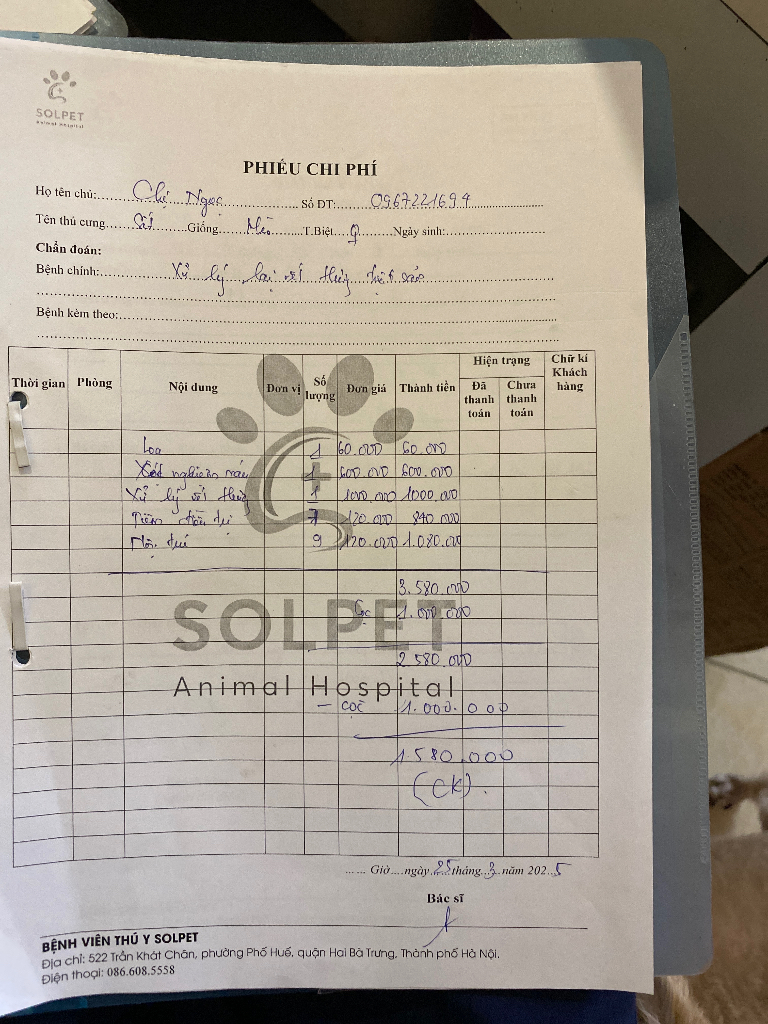 SOLPET
Animal Hospital
PHIẾU CHI PHÍ
Họ tên chủ: Chị Ngọc Số ĐT: 0967221694
Tên thú cưng Giống Mèo T.Biệt ♀ Ngày sinh:
Chẩn đoán:
Bệnh chính: Xử lý lại vết thủy
Bệnh kèm theo:
Thời gian Phòng Nội dung Đơn vị Số lượng Đơn giá Thành tiền Hiện trạng Đã thanh toán Chưa thanh toán Chữ kí Khách hàng
Loa 1 60.000 60.000
Xét nghiệm máu 1 600.000 600.000
Xử lý vết 1 1000.000 1000.000
Tiêm điều trị 7 120.000 840.000
Nội trú 9 120.000 1.080.000
3.580.000
Cọc 1.000.000
SOLPET
2.580.000
Animal Hospital
- cọc 1.000.000
1.580.000
(CK).
Giờ ngày 25 tháng 3 năm 2025
Bác sĩ
BỆNH VIỆN THÚ Y SOLPET
Địa chỉ: 522 Trần Khát Chân, phường Phố Huế, quận Hai Bà Trưng, Thành phố Hà Nội.
Điện thoại: 086.608.5558